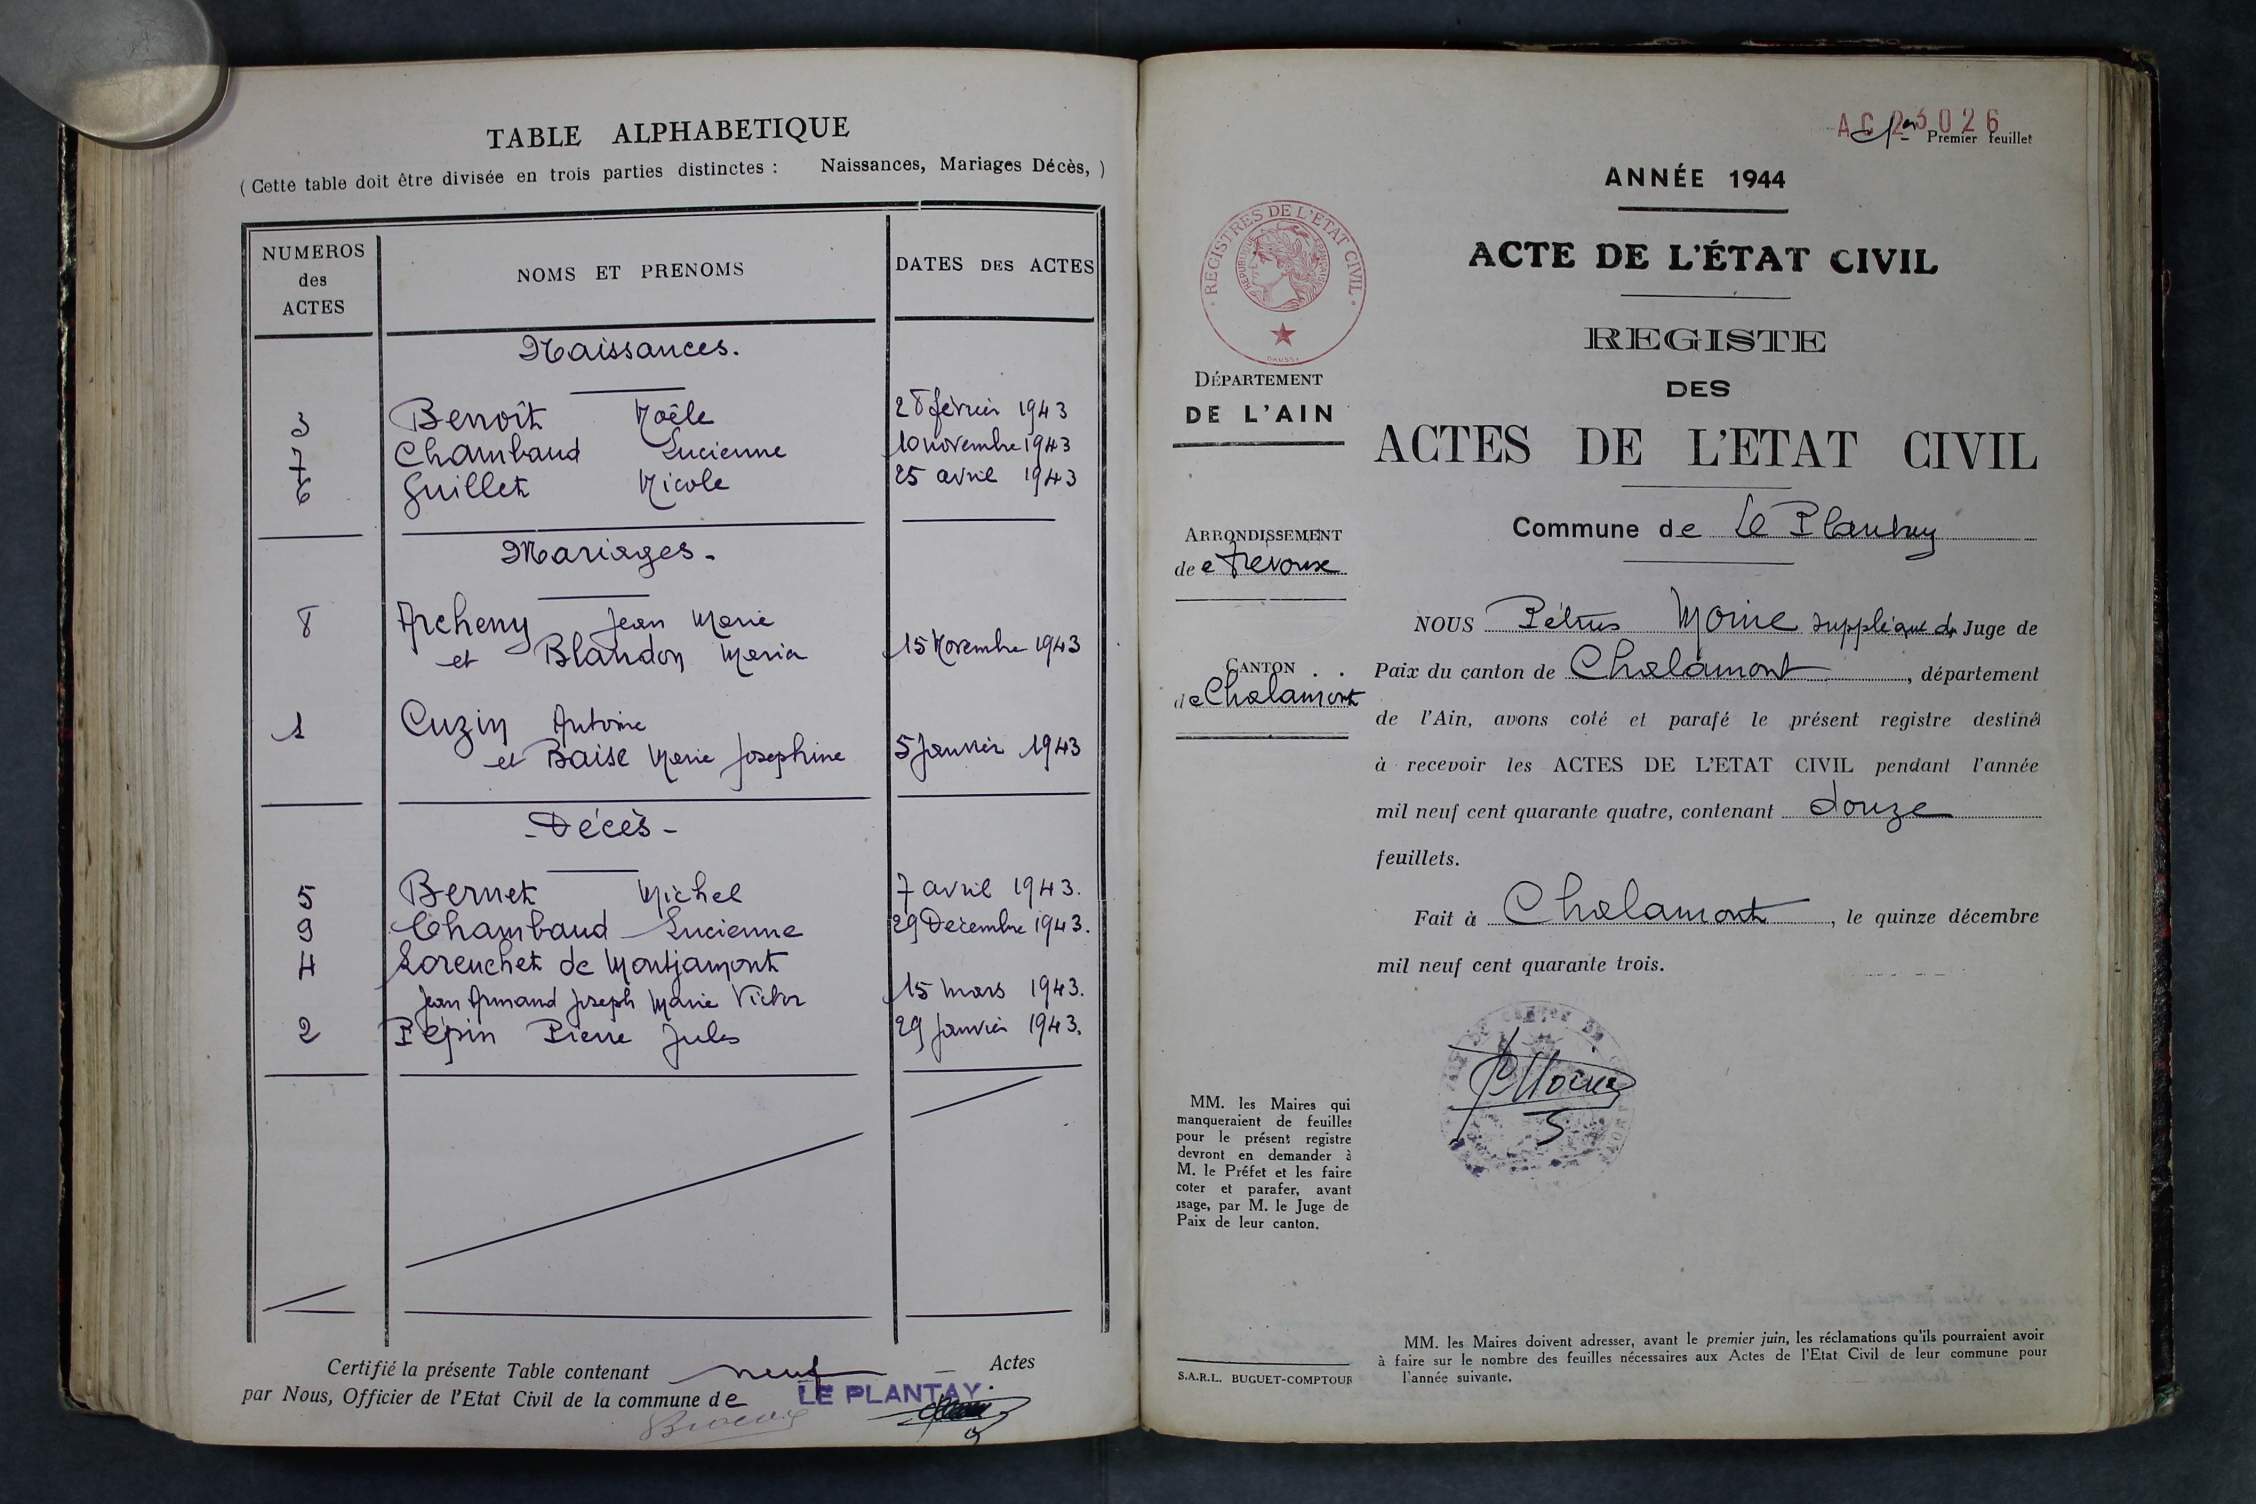 TABLE ALPHABETIQUE
(Cette table doit être divisée en trois parties distinctes : Naissances, Mariages Décès, )
NUMEROS
des
ACTES
NOMS ET PRENOMS
DATES DES ACTES
Naissances.
3 Benoît Noële 28 février 1943
7 Chambaud Lucienne 10 novembre 1943
6 Guillet Nicole 25 avril 1943
Mariages.
8 Archeny Jean Marie
et Blandon Maria 15 Novembre 1943
1 Cuzin Antoine
et Baise Marie Josephine 5 Janvier 1943
- Décès -
5 Bernet Michel 7 avril 1943.
9 Chambaud Lucienne 29 Décembre 1943.
4 Lorenchet de Montjamont
Jean Armand Joseph Marie Victor 15 mars 1943.
2 Pépin Pierre Jules 29 Janvier 1943.
Certifié la présente Table contenant neuf Actes
par Nous, Officier de l'Etat Civil de la commune de LE PLANTAY.
AC 23026
1er Premier feuillet
ANNÉE 1944
ACTE DE L'ÉTAT CIVIL
REGISTRES DE L'ETAT CIVIL
REPUBLIQUE FRANÇAISE
REGISTE
DES
ACTES DE L'ETAT CIVIL
DÉPARTEMENT
DE L'AIN
Commune de Le Plantay
ARRONDISSEMENT
de Trévoux
CANTON
de Chalamont
NOUS Pétrus Moine suppléant du Juge de
Paix du canton de Chalamont, département
de l'Ain, avons coté et parafé le présent registre destiné
à recevoir les ACTES DE L'ETAT CIVIL pendant l'année
mil neuf cent quarante quatre, contenant douze
feuillets.
Fait à Chalamont, le quinze décembre
mil neuf cent quarante trois.
P Moine
MM. les Maires qui
manqueraient de feuilles
pour le présent registre
devront en demander à
M. le Préfet et les faire
coter et parafer, avant
usage, par M. le Juge de
Paix de leur canton.
S.A.R.L. BUGUET-COMPTOUR
MM. les Maires doivent adresser, avant le premier juin, les réclamations qu'ils pourraient avoir
à faire sur le nombre des feuilles nécessaires aux Actes de l'Etat Civil de leur commune pour
l'année suivante.